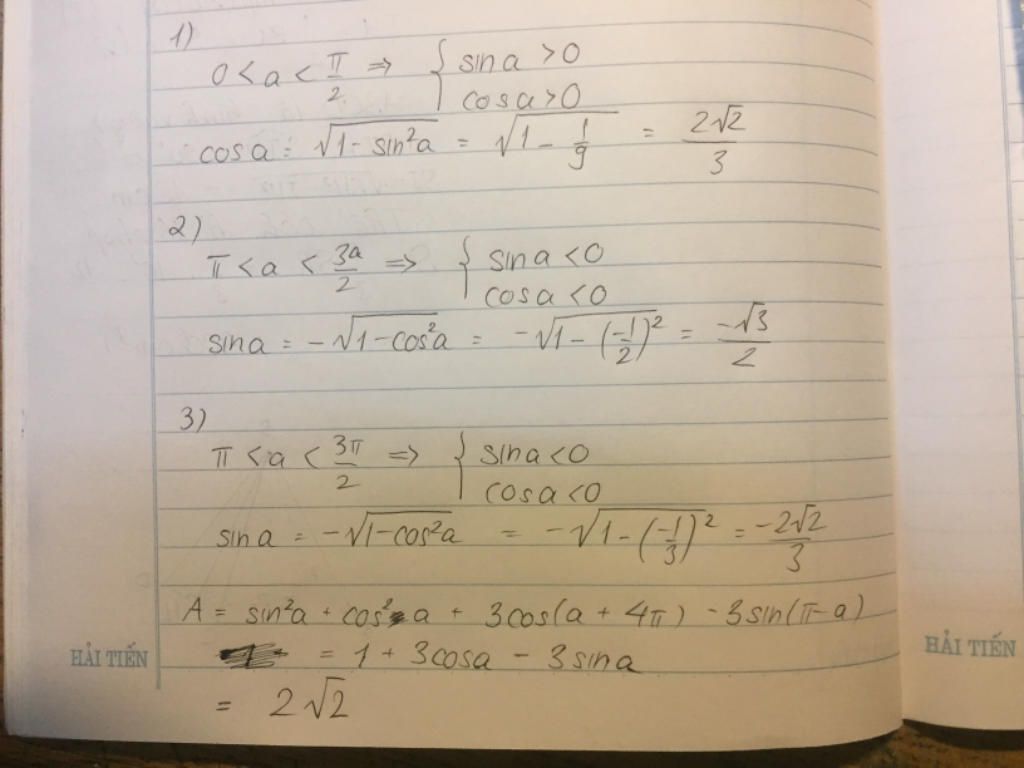 1)
0 < a < π/2 ⇒ { sin a > 0
cos a > 0
cos a = √(1 - sin²a) = √(1 - 1/9) = 2√2/3
2)
π < a < 3a/2 ⇒ { sin a < 0
cos a < 0
sin a = -√(1 - cos²a) = -√(1 - (-1/2)²) = -√3/2
3)
π < a < 3π/2 ⇒ { sin a < 0
cos a < 0
sin a = -√(1 - cos²a) = -√(1 - (-1/3)²) = -2√2/3
A = sin²a + cos²a + 3cos(a + 4π) - 3sin(π - a)
= 1 + 3cos a - 3sin a
= 2√2
HẢI TIẾN
HẢI TIẾN